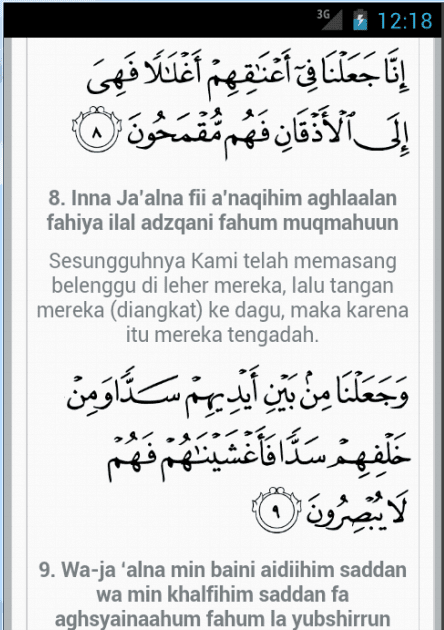 3G 12:18
إِنَّا جَعَلْنَا فِىٓ أَعْنَٰقِهِمْ أَغْلَٰلًا فَهِىَ
إِلَى ٱلْأَذْقَانِ فَهُم مُّقْمَحُونَ ٨
8. Inna Ja'alna fii a'naqihim aghlaalan
fahiya ilal adzqani fahum muqmahuun
Sesungguhnya Kami telah memasang
belenggu di leher mereka, lalu tangan
mereka (diangkat) ke dagu, maka karena
itu mereka tengadah.
وَجَعَلْنَا مِنۢ بَيْنِ أَيْدِيهِمْ سَدًّا وَمِنْ
خَلْفِهِمْ سَدًّا فَأَغْشَيْنَٰهُمْ فَهُمْ
لَا يُبْصِرُونَ ٩
9. Wa-ja ‘alna min baini aidiihim saddan
wa min khalfihim saddan fa
aghsyainaahum fahum la yubshirrun